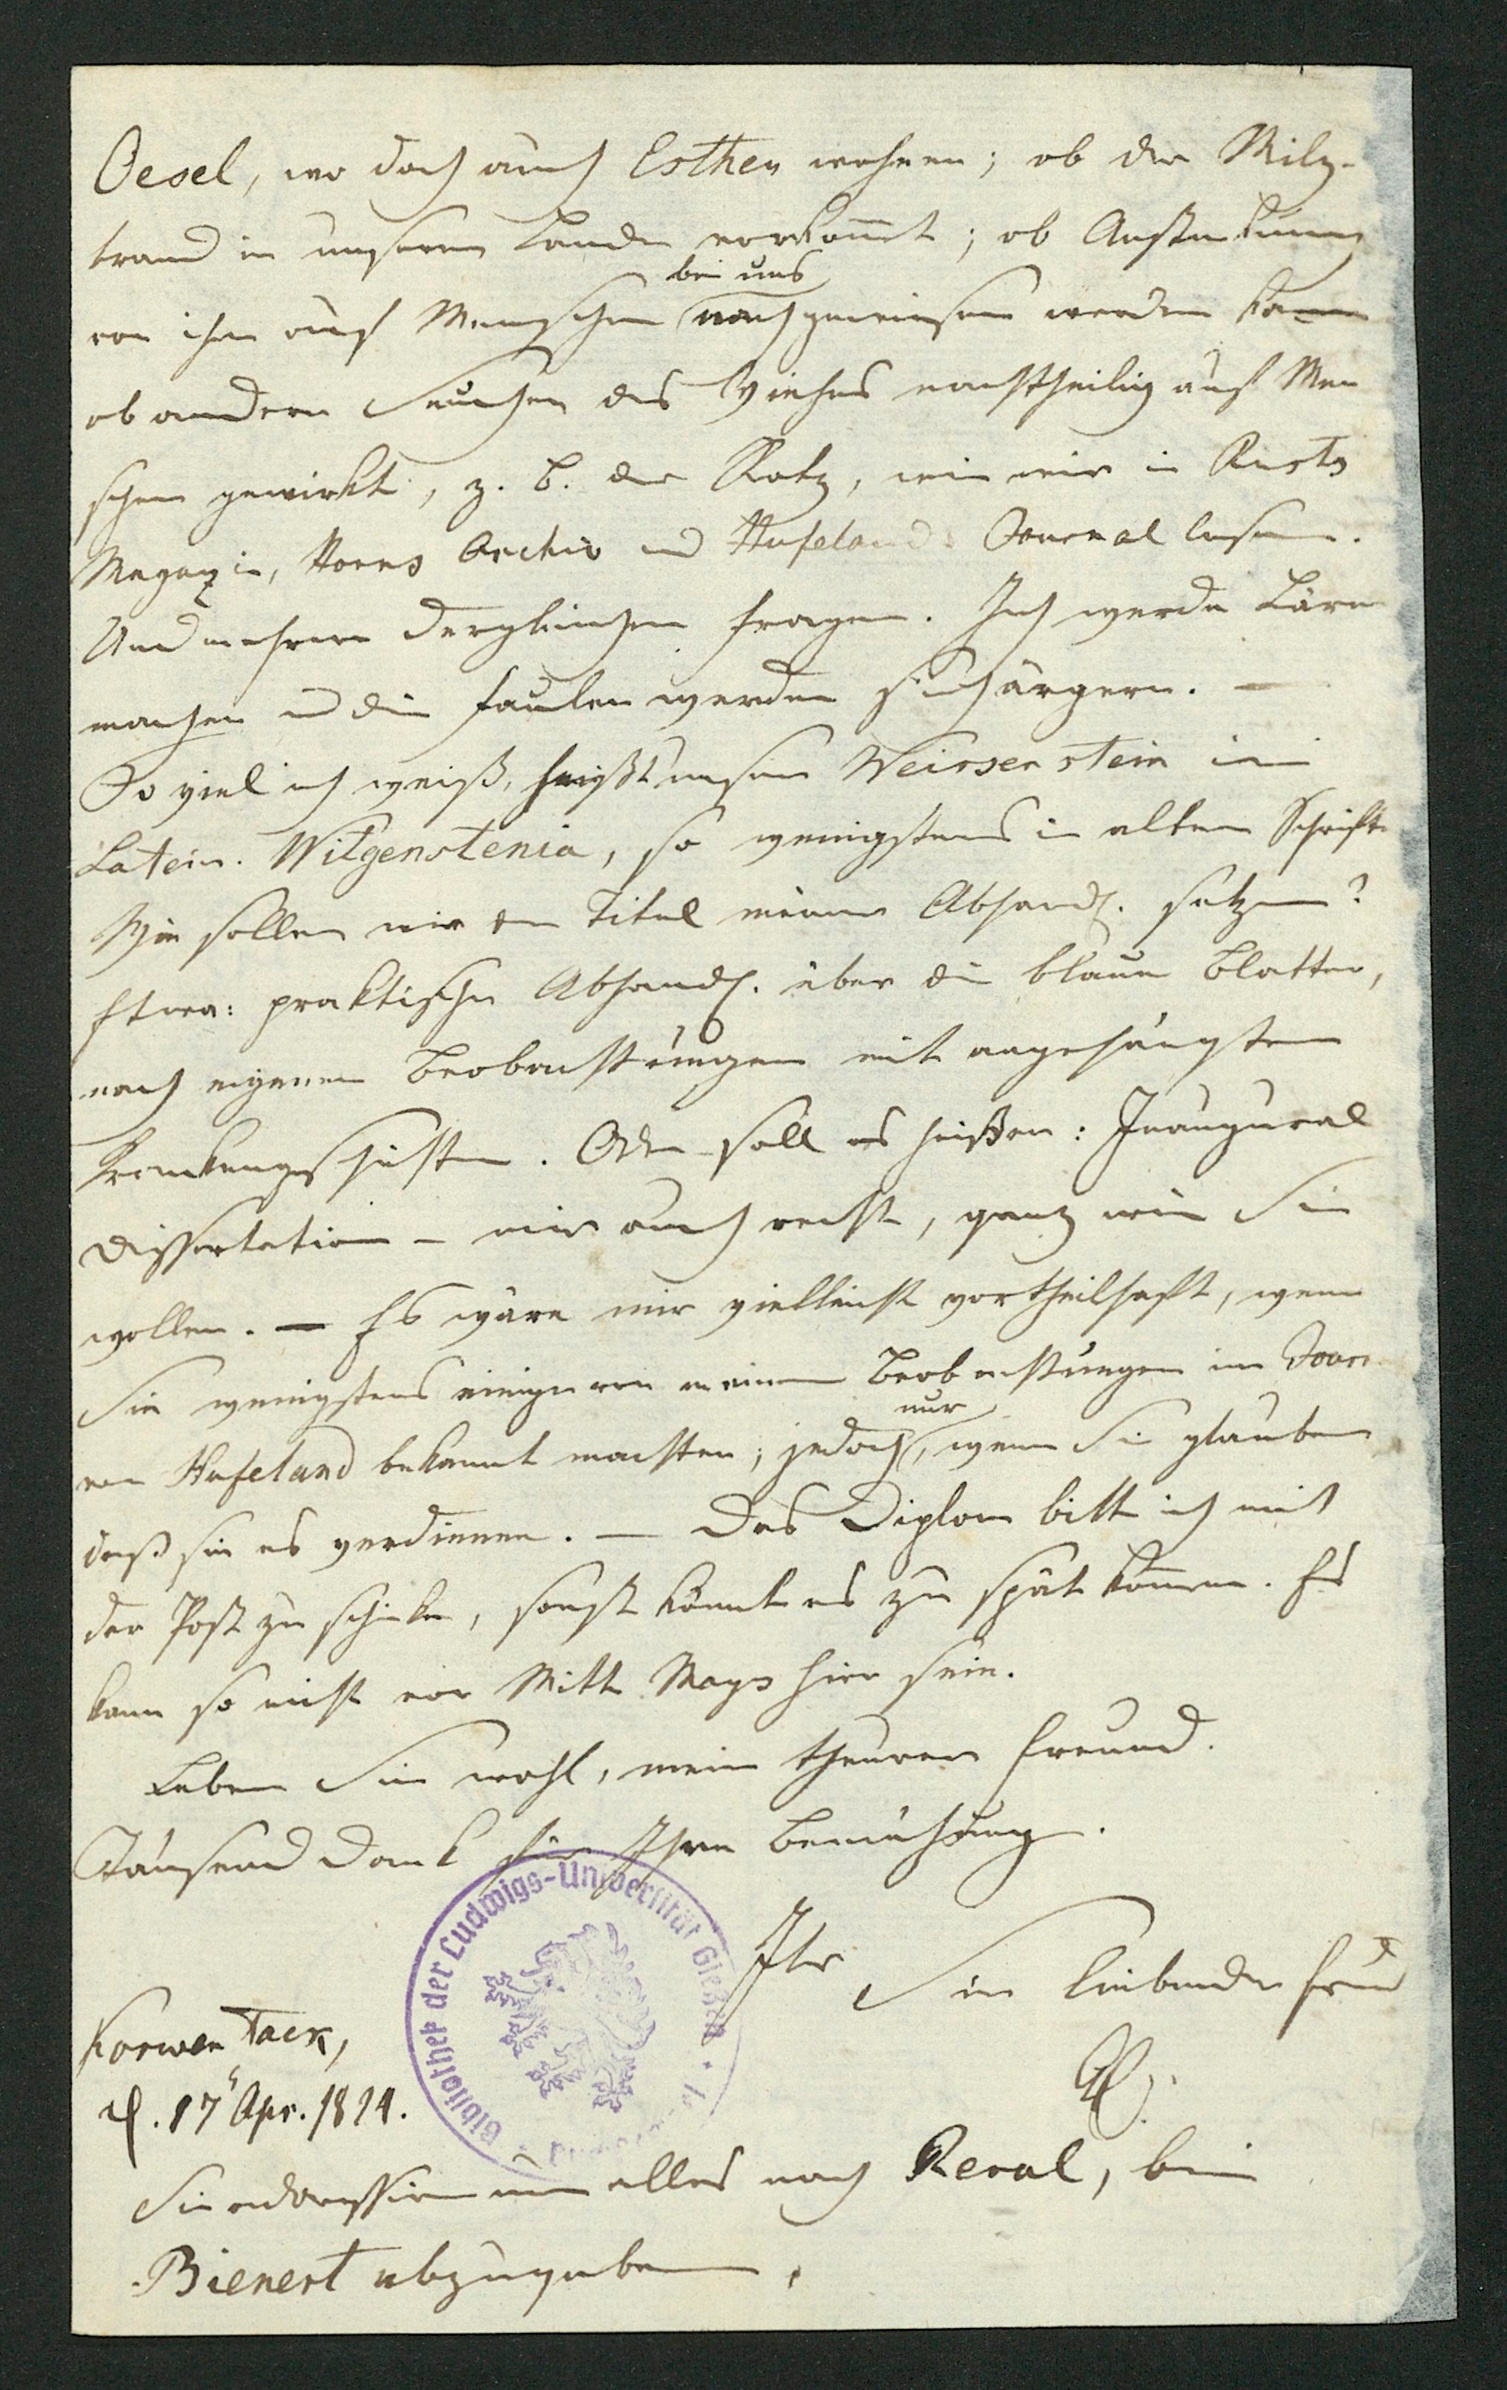 Oesel, wo doch auch Esthen wohnen; ob der Milz-
brand in unserem Lande vorkom̅t; ob Ansteckung
bei uns
von ihm auf Menschen nachgewiesen werden kann
ob andere Seuchen des Viehes nachtheilig auf Men
schen gewirkt, z. B. der Rotz, wie wir in Rusts
Magazin, Horns Archiv und Hufelands Journal lesen.
Und mehrere dergleichen Fragen. Ich werde Lärm
machen u die Faulen werden sich ärgern. —
So viel ich weiß, heißt unser Weissenstein im
Latein. Witgenstenia, so wenigstens in alten Schrift
Wie sollen wir den Titel meiner Abhandl. setzen?
Etwa: praktische Abhandl. über die blaue Blatter,
nach eigenen Beobachtungen mit angehängten
Krankengeschichten. Oder soll es heißen: Inaugural
Dissertation – mir auch recht, ganz wie Sie
wollen. — Es wäre mir vielleicht vortheilhaft, wenn
Sie wenigstens einige von meinen Beobachtungen im Journ.
nur
von Hufeland bekannt machten; jedoch, wenn Sie glauben
daß sie es verdienen. — Das Diplom bitte ich mit
der Post zu schicken, sonst könnte es zu spät kom̅en. Es
kann so nicht vor Mitte Mays hier sein.
Leben Sie wohl, mein theurer Freund.
Tausend Dank für Ihre Bemühung.
Ihr
Sie liebender Freund
Korwen Tack,
d. 17 Apr. 1824.
Sie adressiren nun alles nach Reval, bei
Bienert abzugeben.
Bibliothek der Ludwigs-Universität Gießen